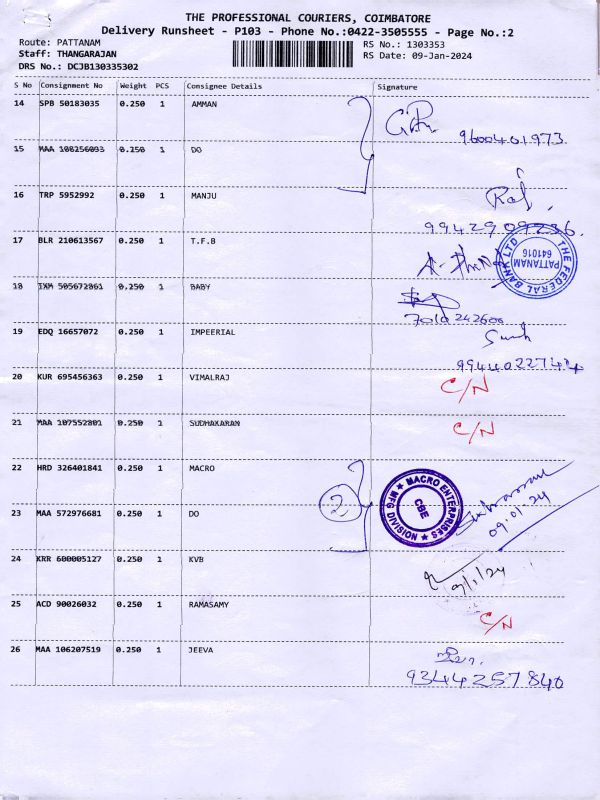 THE PROFESSIONAL COURIERS, COIMBATORE
Delivery Runsheet - P103 - Phone No.:0422-3505555 - Page No.:2
Route: PATTANAM
RS No.: 1303353
Staff: THANGARAJAN
RS Date: 09-Jan-2024
DRS No.: DCJB130335302
S No Consignment No Weight PCS Consignee Details Signature
14 SPB 50183035 0.250 1 AMMAN
9600401973
15 MAA 108256093 0.250 1 DO
16 TRP 5952992 0.250 1 MANJU
Raj
9942909236
17 BLR 210613567 0.250 1 T.F.B
THE FEDERAL BANK LTD
PATTANAM
641016
18 IXM 505672861 0.250 1 BABY
7010242606
19 EDQ 16657072 0.250 1 IMPEERIAL
20 KUR 695456363 0.250 1 VIMALRAJ
C/N
21 MAA 107552801 0.250 1 SUDHAKARAN
C/N
22 HRD 326401841 0.250 1 MACRO
2
MACRO ENTERPRISES
MFG DIVISION
CBE
09.01.24
23 MAA 572976681 0.250 1 DO
24 KRR 600005127 0.250 1 KVB
9/1/24
25 ACD 90026032 0.250 1 RAMASAMY
C/N
26 MAA 106207519 0.250 1 JEEVA
9344257840